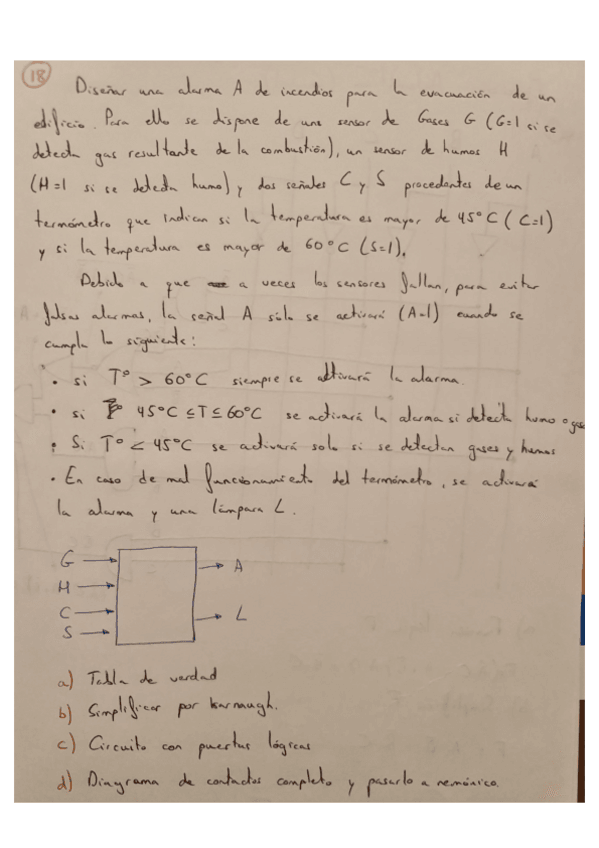 18
Diseñar una alarma A de incendios para la evacuación de un
edificio. Para ello se dispone de uns sensor de Gases G (G=1 si se
detecta gas resultante de la combustión), un sensor de humos H
(H=1 si se detecta humo) y dos señales C y S procedentes de un
termómetro que indican si la temperatura es mayor de 45°C (C=1)
y si la temperatura es mayor de 60°C (S=1).
Debido a que a veces los sensores fallan, para evitar
falsas alarmas, la señal A sólo se activará (A=1) cuando se
cumpla lo siguiente:
• si T° > 60°C siempre se activará la alarma.
• si 45°C ≤ T ≤ 60°C se activará la alarma si detecta humo o gas
• Si T° < 45°C se activará solo si se detectan gases y humos
• En caso de mal funcionamiento del termómetro, se activará
la alarma y una lámpara L.
G A
H
C L
S
a) Tabla de verdad
b) Simplificar por karnaugh.
c) Circuito con puertas lógicas
d) Diagrama de contactos completo y pasarlo a nemónico.